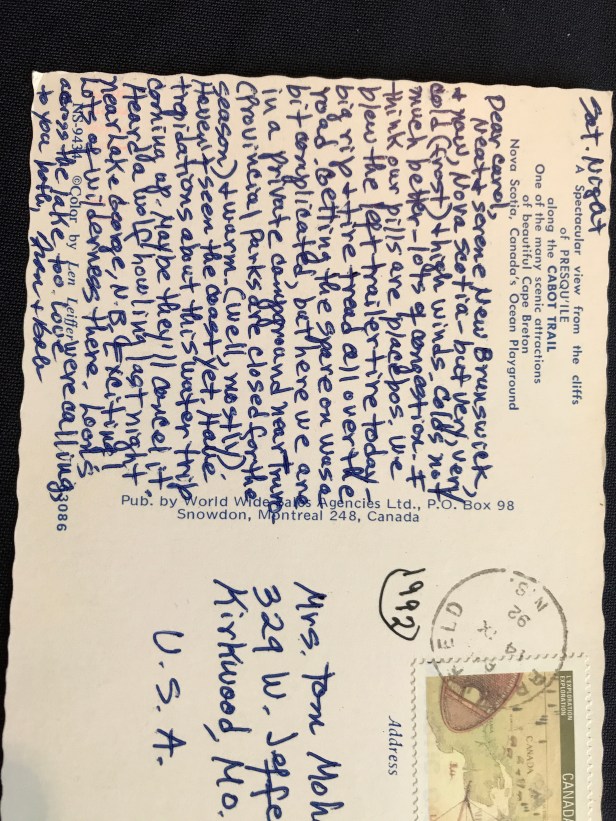 Sat. Night
A Spectacular view from the cliffs
of PRESQU'ILE
along the CABOT TRAIL
One of the many scenic attractions
of beautiful Cape Breton
Nova Scotia, Canada's Ocean Playground
Dear Carol,
Neat & serene New Brunswick,
& now, Nova Scotia - but very, very
cold (frost) & high winds. Colds not
much better - lots of congestion. I
think our pills are placebos. We
blew the left trailer tire today -
big rip & tire tread all over the
road. Getting the spare on was a
bit complicated, but here we are
in a private campground near Truro
(Provincial Parks are closed for the
season) & warm (well, mostly).
Haven't seen the coast yet. Have
trepidations about this water trip
coming up. Maybe they'll cancel it.
Heard a wolf howling last night
near Lake George, N.B. Exciting!
Lots of wilderness there. Loons
were calling
across the lake, too. Love
to you both,
NS-943 ©Color by Len Leiffer
3086
Pub. by World Wide Sales Agencies Ltd., P.O. Box 98
Snowdon, Montreal 248, Canada
1992
FIELD
N.S.
92
IX
14
L'EXPLORATION
EXPLORATION
CANADA
CANADA
Address
Mrs. Tom Moh
329 W. Jeffe
Kirkwood, Mo.
U.S.A.